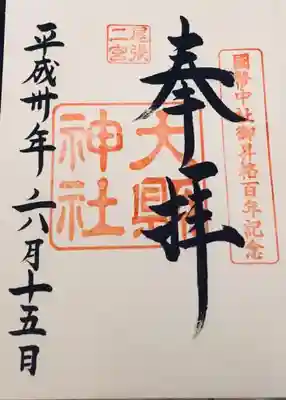 國幣中社御昇格百年記念
奉拝
尾張
二宮
大縣
神社
平成卅年六月十五日